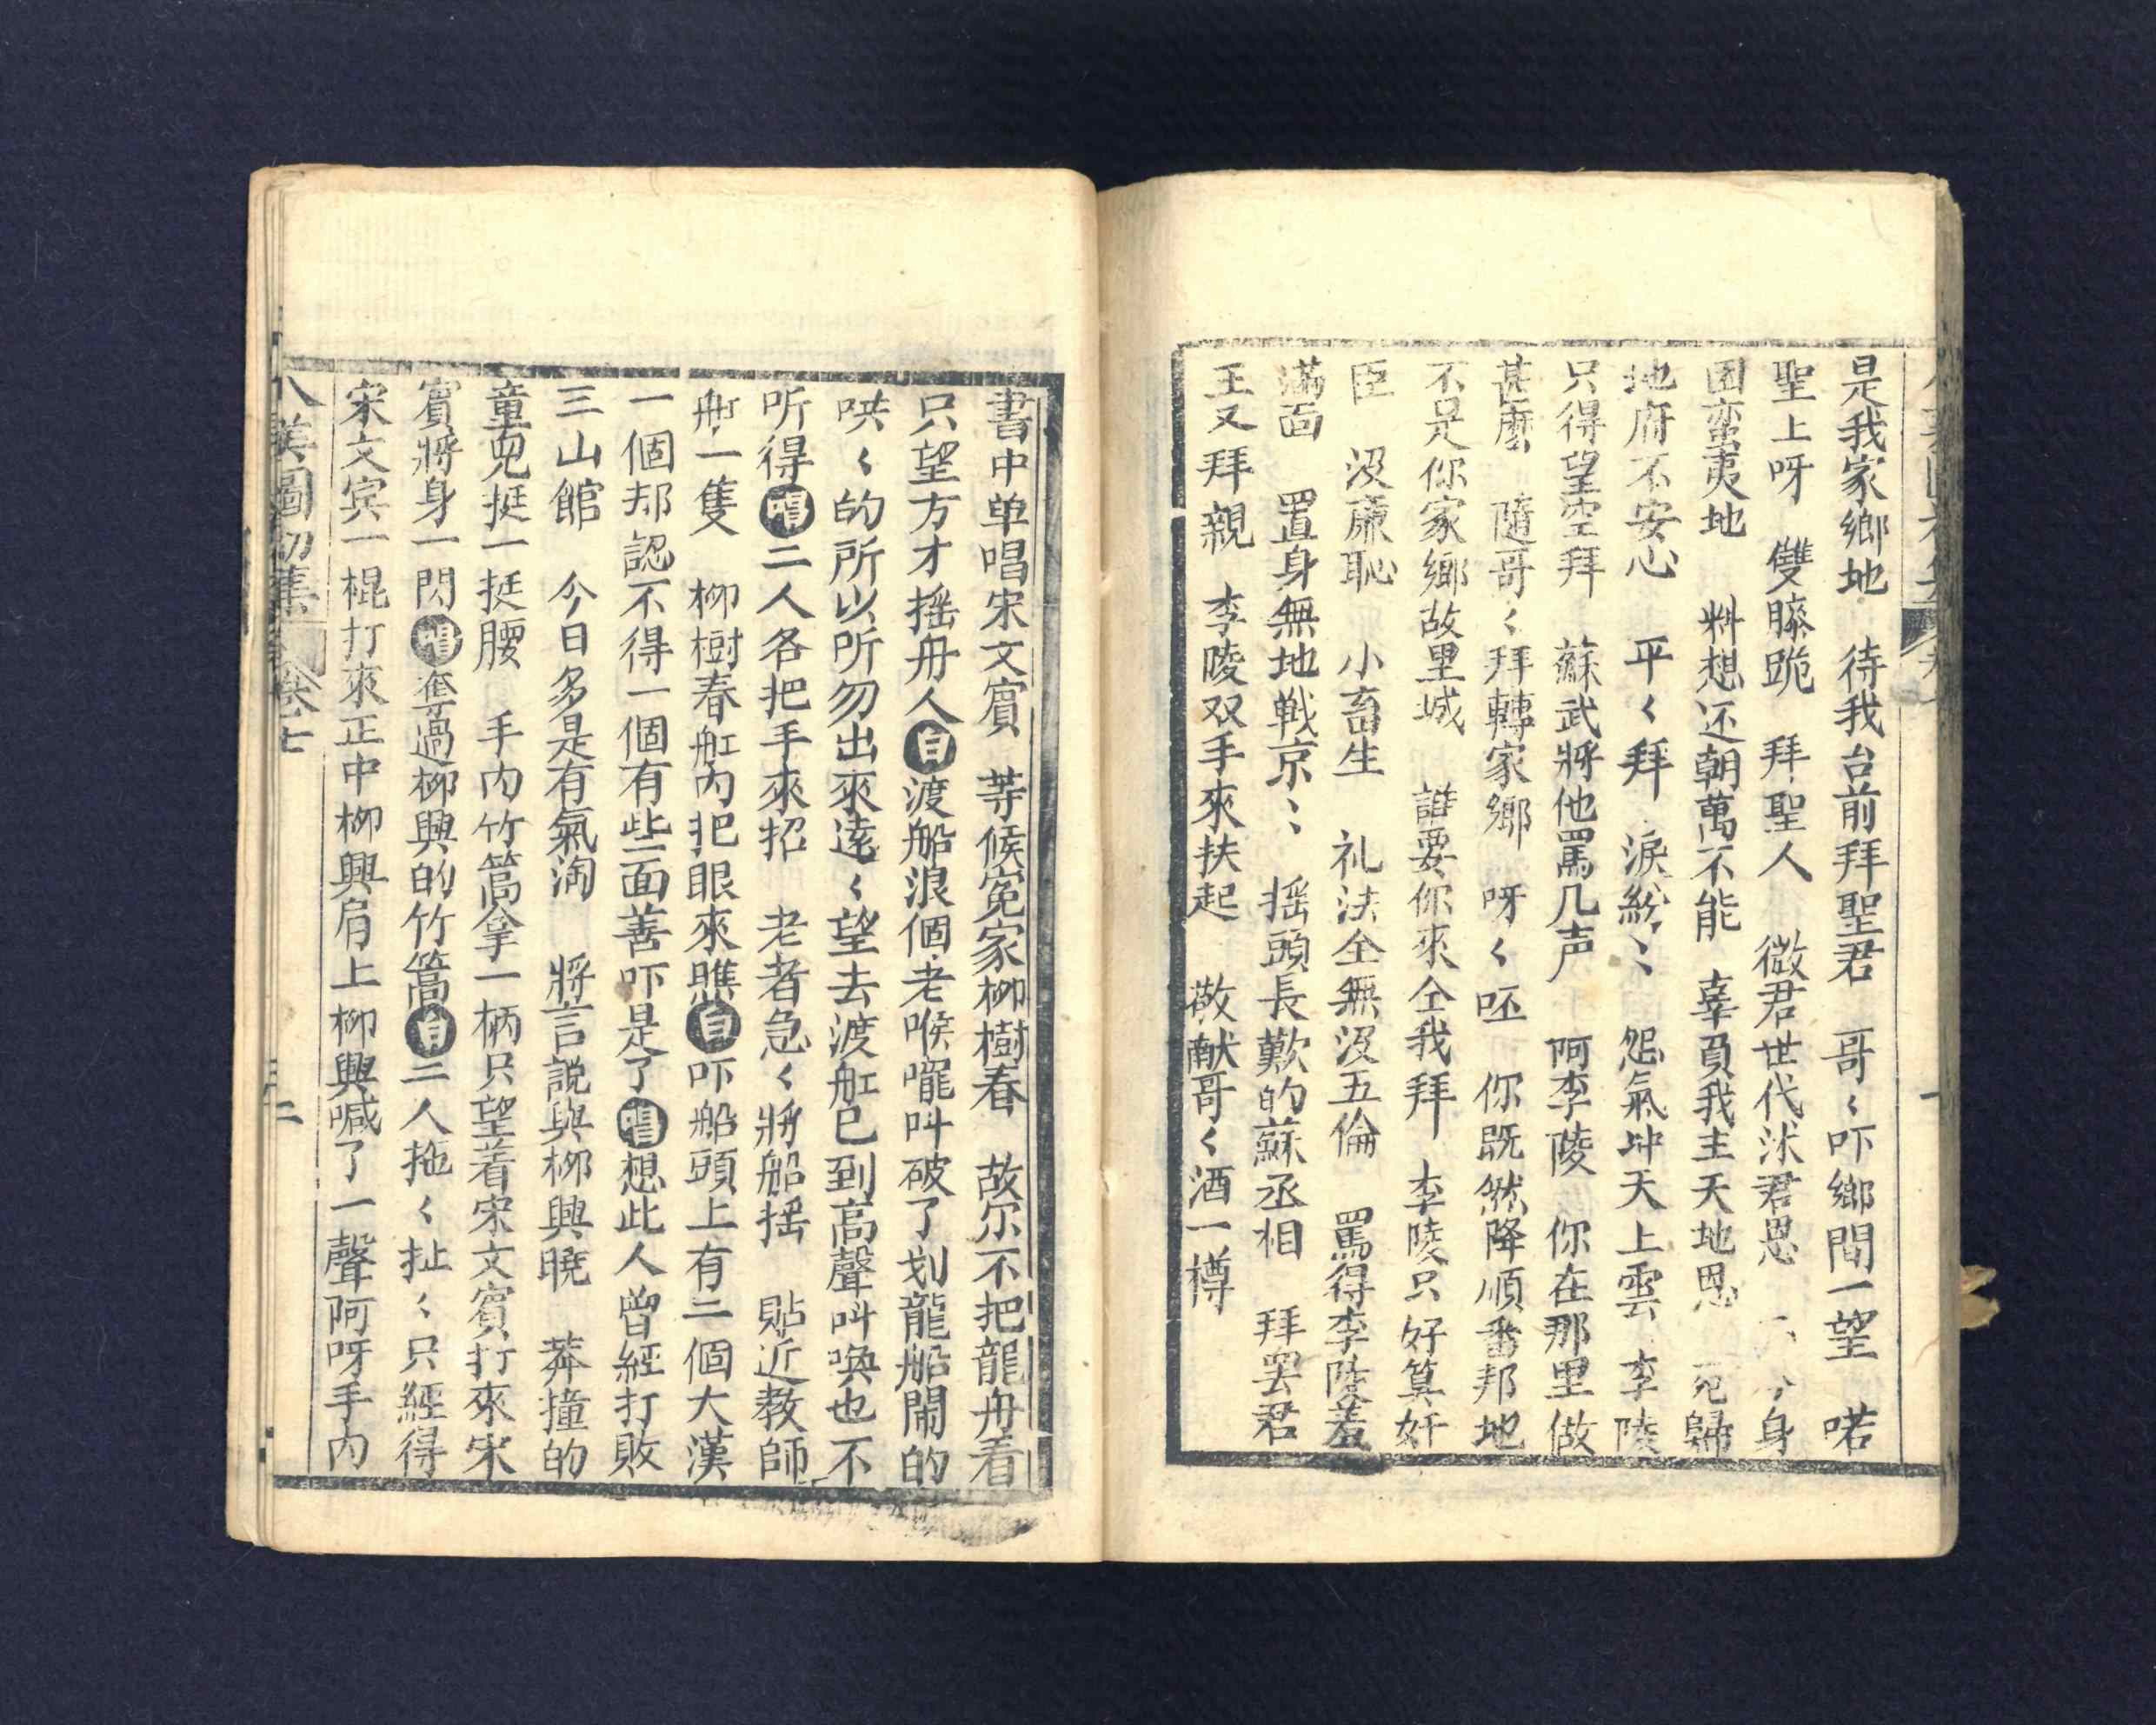 是我家鄉地　待我台前拜聖君　哥〱吓鄉間一望　喏
聖上呀　雙膝跪　拜聖人　微君世代沐君恩　今身
國蛮夷地　料想还朝萬不能　辜負我主天地恩　歸
地府不安心　平〱拜　淚紛〻　怨氣冲天上雲　李陵
只得望空拜　蘇武將他罵几声　阿李陵　你在那里做
甚麽　隨哥〱拜轉家鄉　呀〱呸　你既然降順番邦地
不是你家鄉故里城　誰要你來仝我拜　李陵只好算奸
臣　沒亷恥　小畜生　礼法全無沒五倫　罵得李陵羞
滿面　置身無地戰京〻　摇頭長歎的蘇丞相　拜罢君
王又拜親　李陵双手來扶起　敬献哥〱酒一樽
書中单唱宋文賓　等候寃家柳樹春　故尔不把龍舟看
只望方才摇舟人白渡船浪個老喉嚨叫破了划龍船鬧的
哄〱的所以听勿出來遠〱望去渡舡已到高聲叫喚也不
听得唱二人各把手來招　老者急〱將船摇　貼近教師
舟一隻　柳樹春舡內把眼來瞧白吓船頭上有二個大漢
一個却認不得一個有些面善吓是了唱想此人曾經打敗
三山館　今日多是有氣淘　將言說與柳興曉　莾撞的
童兒挺一挺腰　手內竹篙拿一柄只望着宋文賓打來宋
賓將身一閃唱奪過柳興的竹篙白二人拖〱扯〱只經得
宋文宾一棍打來正中柳興肩上柳興喊了一聲阿呀手內
八美圖初集　卷七
二